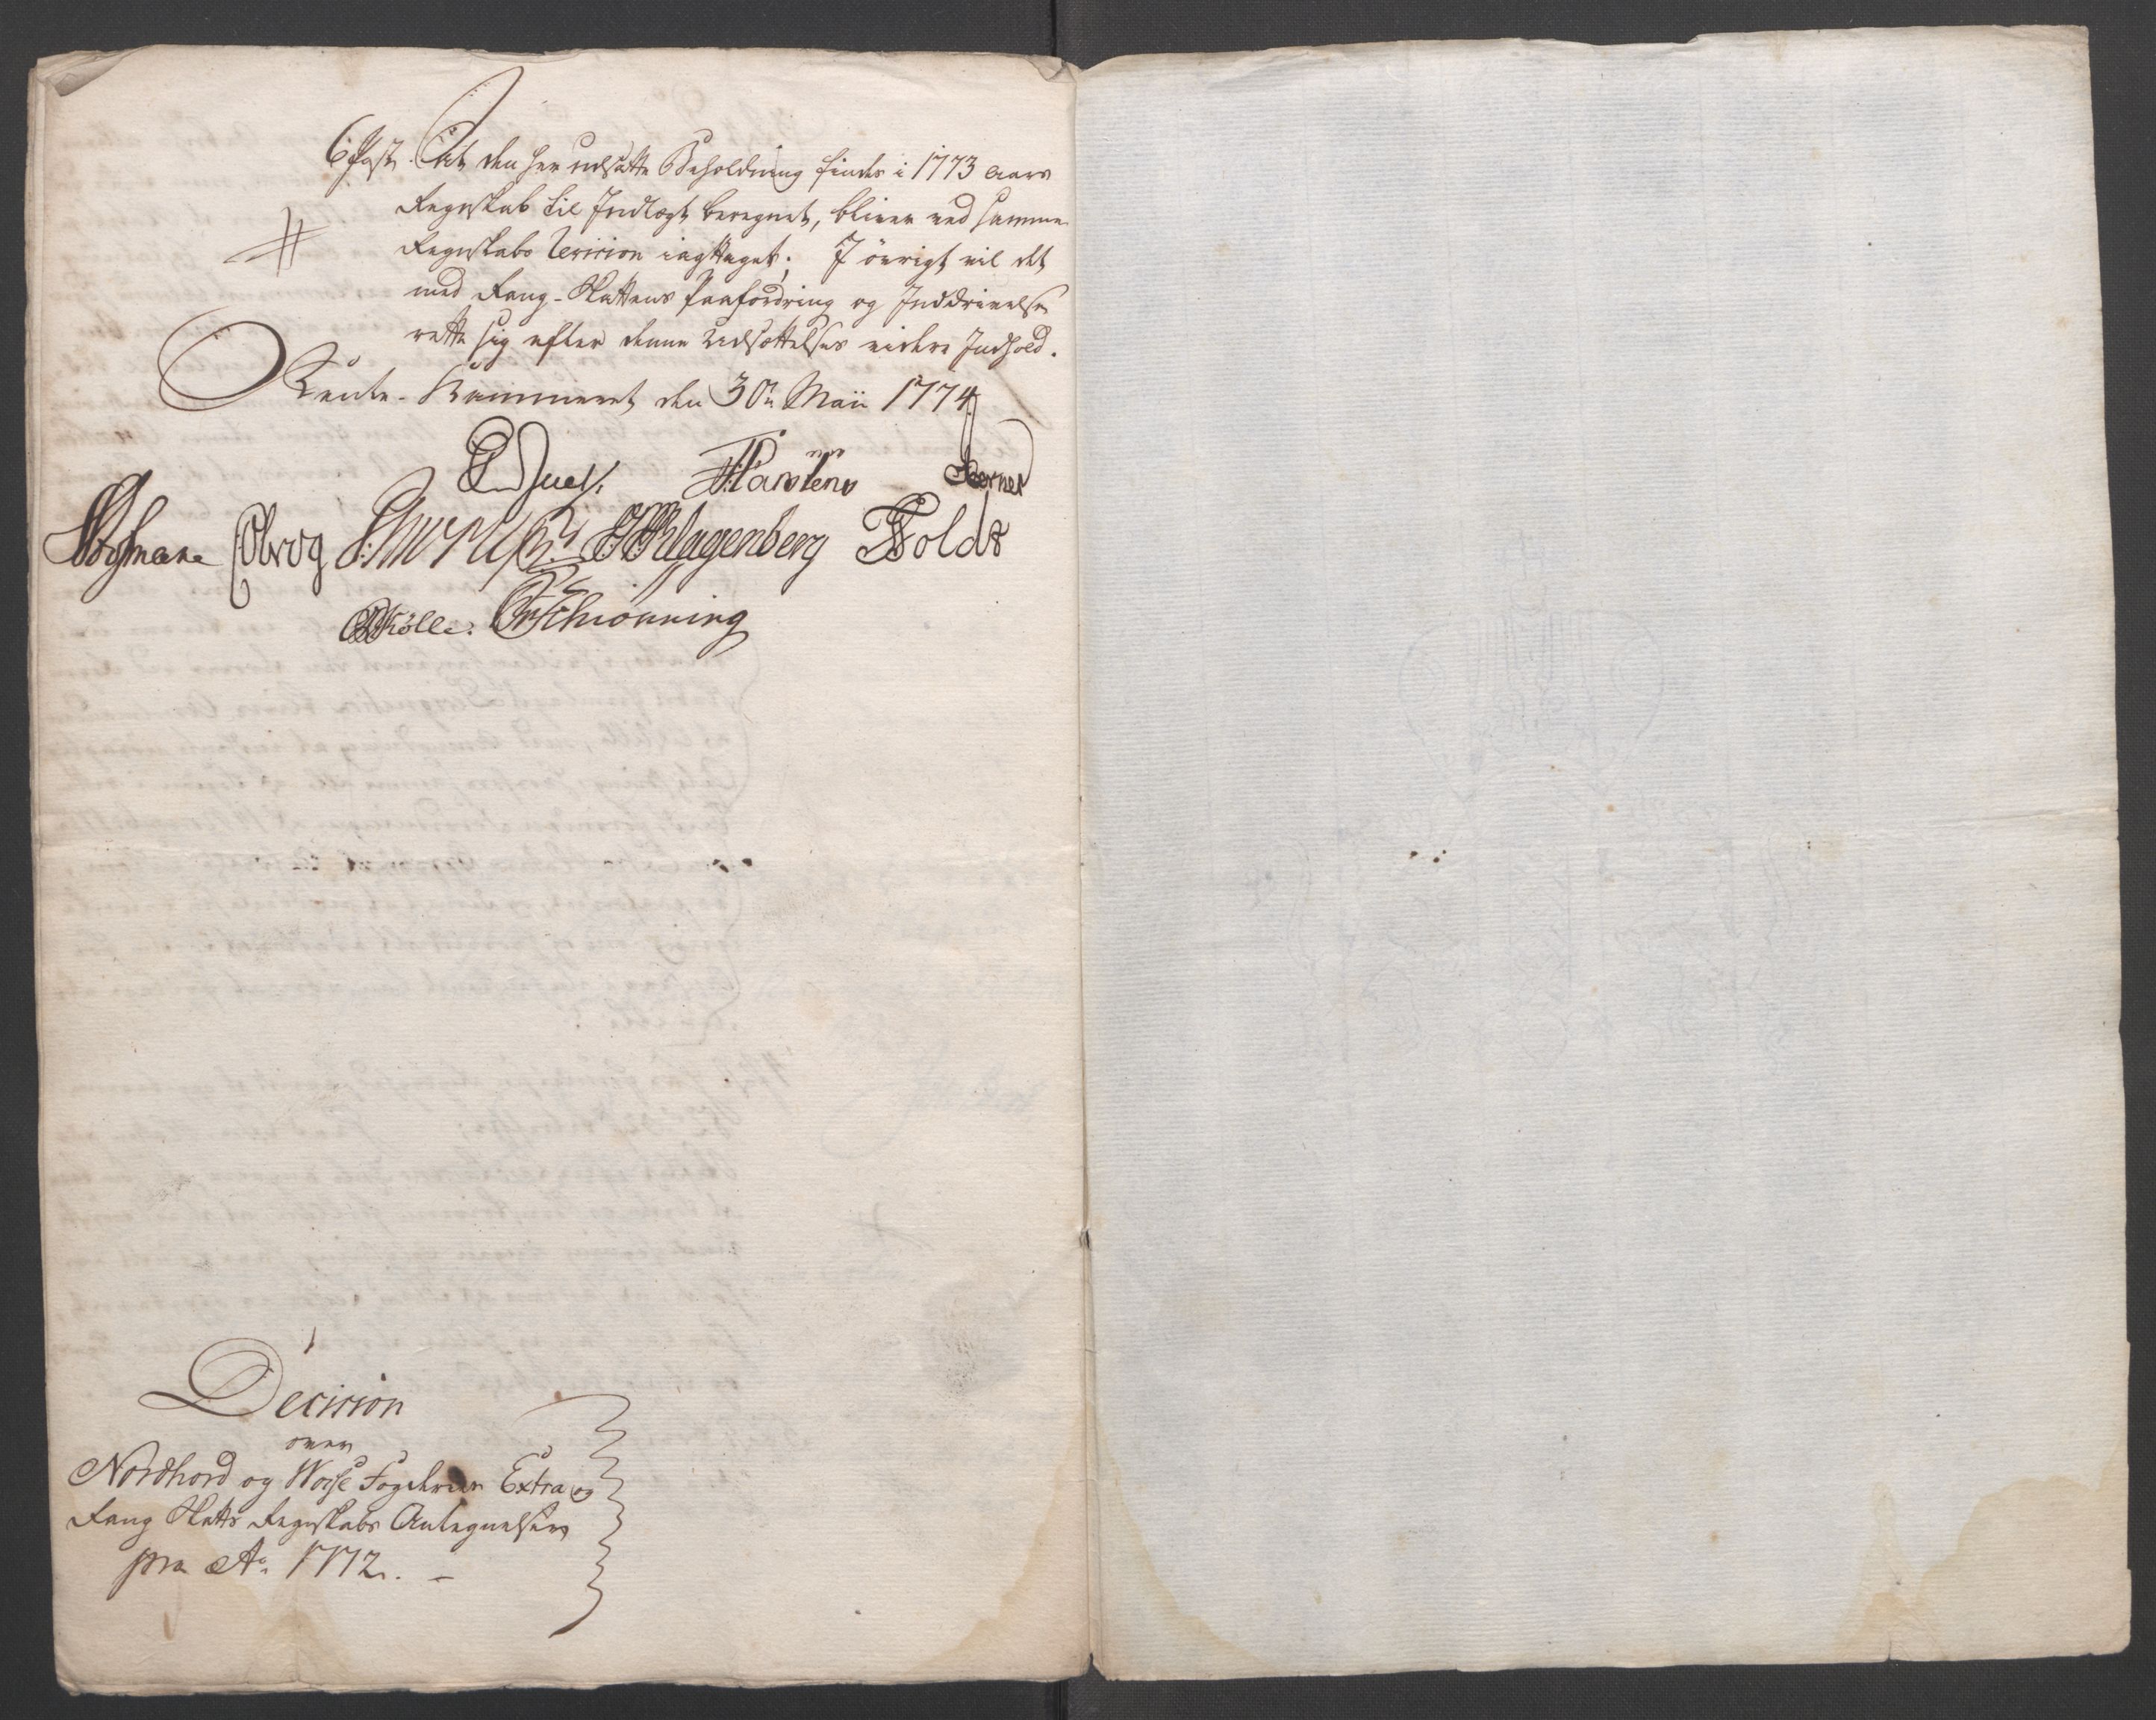 6 Post. At den her udsatte Beholdning findes i 1773 Aars
Regnskab til Indtægt beregnet, bliver ved samme
Regnskabs Revision iagttaget; I övrigt vil det
med Rang-Skattens Paafordring og Inddrivelse
rette sig efter denne Udsættelses videre Indhold.
Rente-Kammeret den 30te Maii 1774
Juel. Karstens Berner
Olrog Klagenberg Holdt
Kölle. Schiönning
Decision
over
Nordhord og Wosse Fogderier Extra og
Rang Skatts Regnskabs Antegnelser
pro Ao. 1772. -